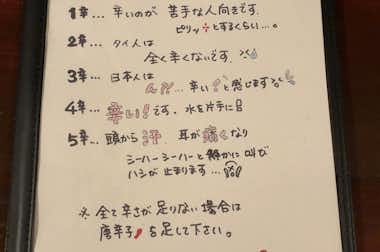 1辛... 辛いのが 苦手な人向きです。
ピリッ とするくらい...。
2辛... タイ人は
全く辛くないです。
3辛... 日本人は
ん?!...辛い!と感じます
4辛... 辛い!です。水を片手に
5辛... 頭から汗、耳が痛くなり
シーハーシーハーと静かに叫び
ハシが止まります...
※ 全て辛さが足りない場合は
唐辛子 を足して下さい。